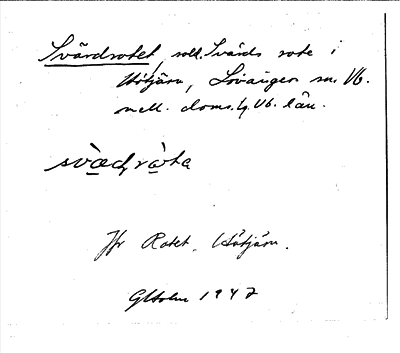 Svärdrotet, sold. Svärds rote i
Hötjärn, Lövånger sn. Vb.
mell. doms. h. Vb. län.
svæ̀dròta
Jfr Rotet, Hötjärn.
GHolm 1947